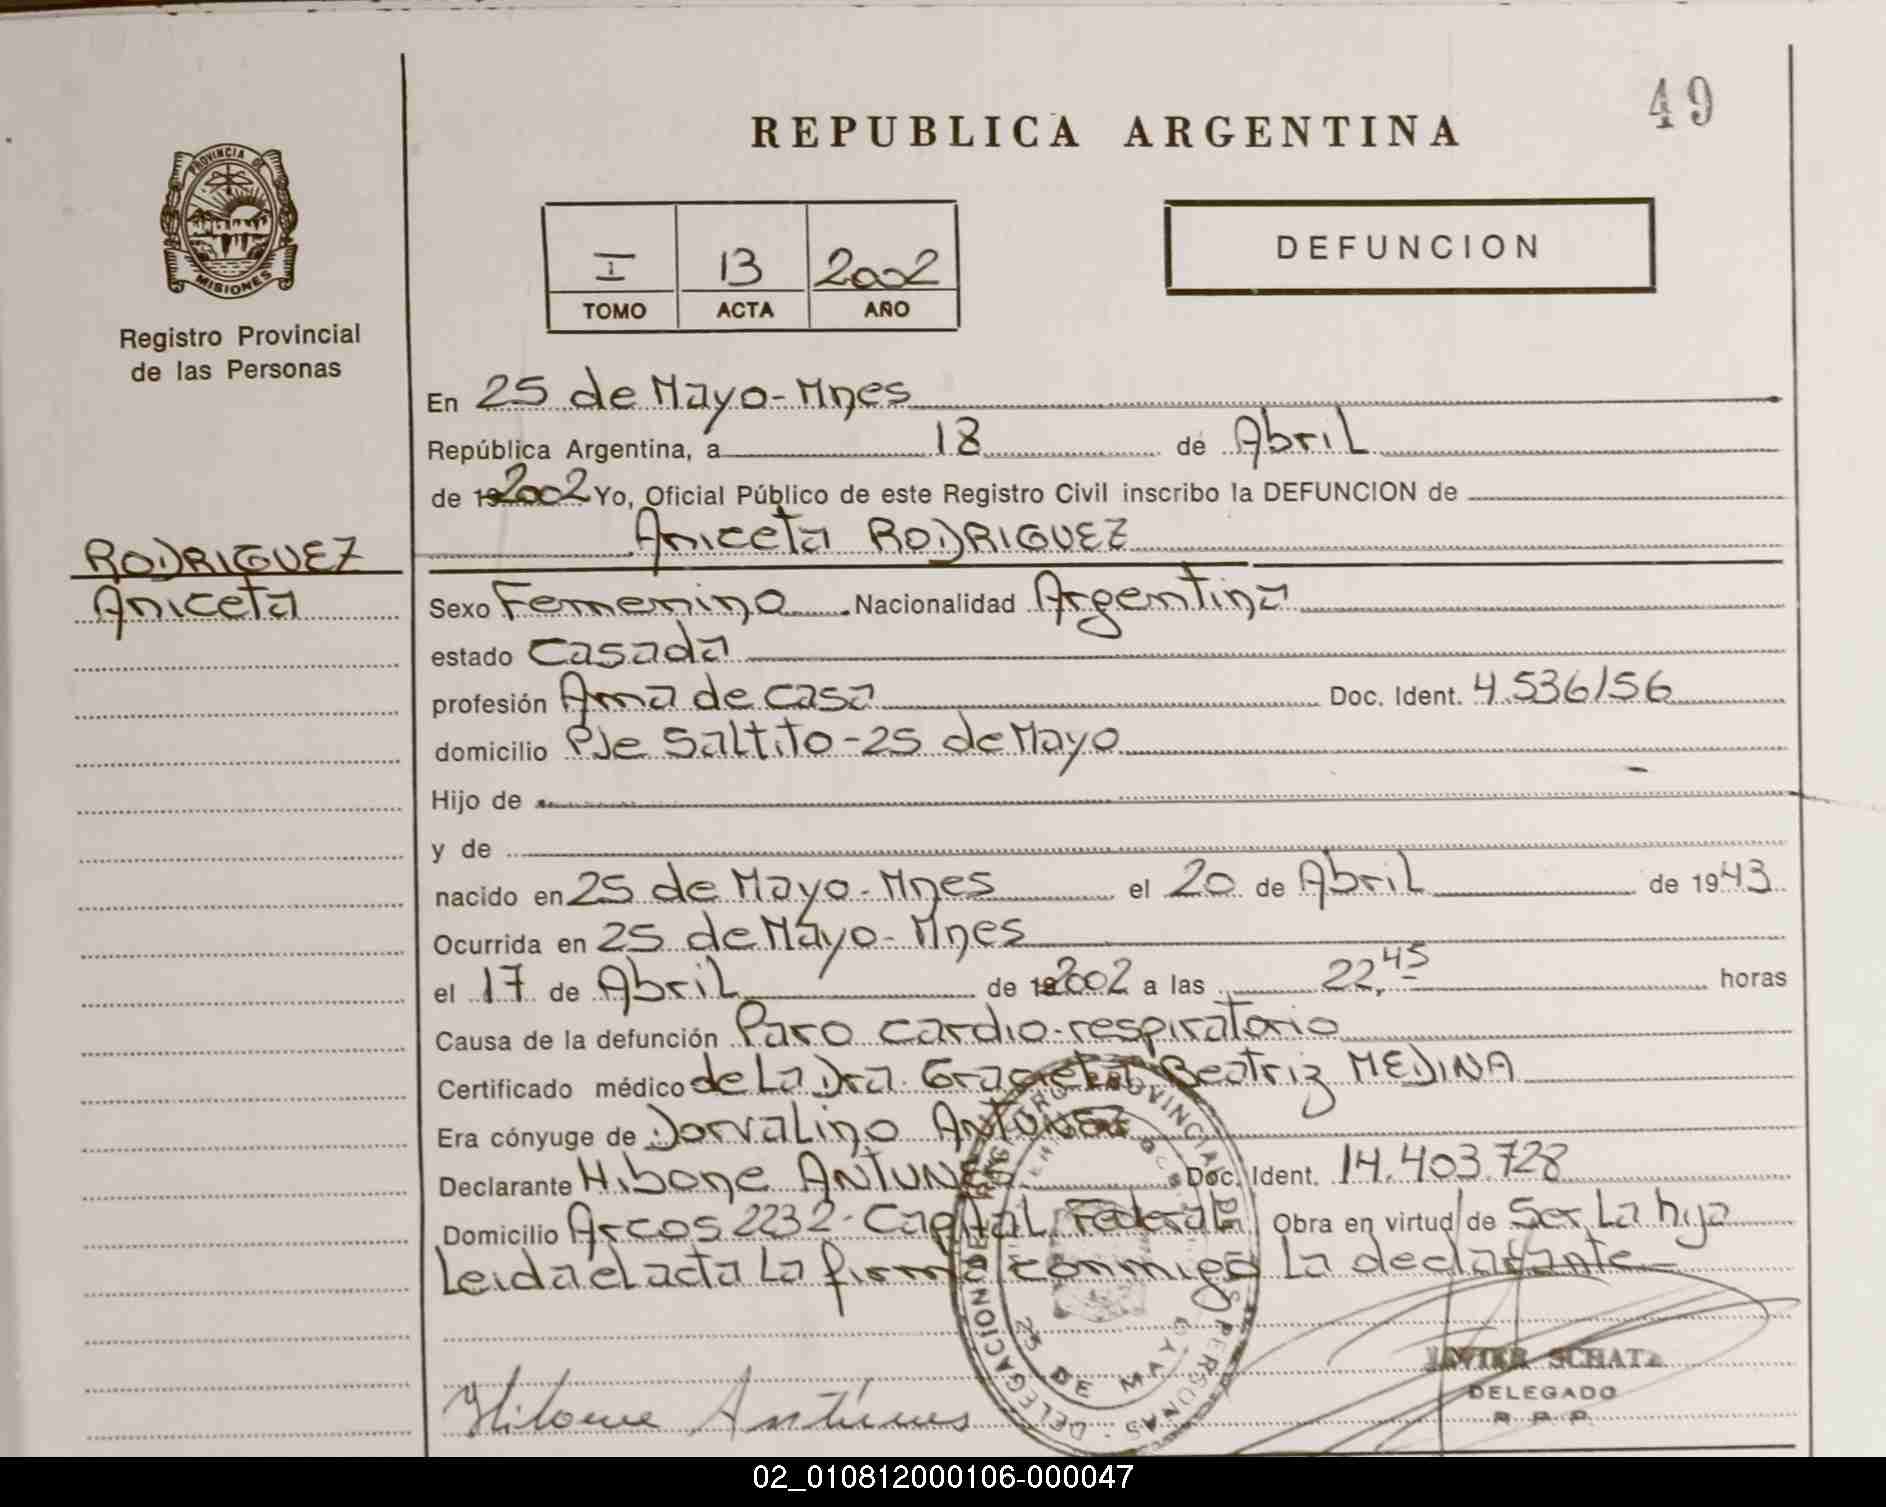 49
REPUBLICA ARGENTINA
PROVINCIA DE
MISIONES
Registro Provincial
de las Personas
I 13 2002
TOMO ACTA AÑO
DEFUNCION
En 25 de Mayo - Mnes
República Argentina, a 18 de Abril
de 192002 Yo, Oficial Público de este Registro Civil inscribo la DEFUNCION de
Aniceta RODRIGUEZ
RODRIGUEZ
Aniceta
Sexo Femenino Nacionalidad Argentina
estado Casada
profesión Ama de casa Doc. Ident. 4.536156
domicilio Pje Saltito - 25 de Mayo
Hijo de
y de
nacido en 25 de Mayo - Mnes el 20 de Abril de 1943
Ocurrida en 25 de Mayo - Mnes
el 17 de Abril de 192002 a las 22,45 horas
Causa de la defunción Paro cardio-respiratorio
Certificado médico de La Dra. Graciela Beatriz MEDINA
Era cónyuge de Dorvalino ANTUNEZ
Declarante Hibone ANTUNES Doc. Ident. 14.403.728
Domicilio Arcos 2232 - Capital Federal Obra en virtud de Ser La hija
Leida el acta La firma conmigo La declarante
DELEGACION 25 DE MAYO
JAVIER SCHATZ
DELEGADO
R. P. P.
Antúnes
02_010812000106-000047